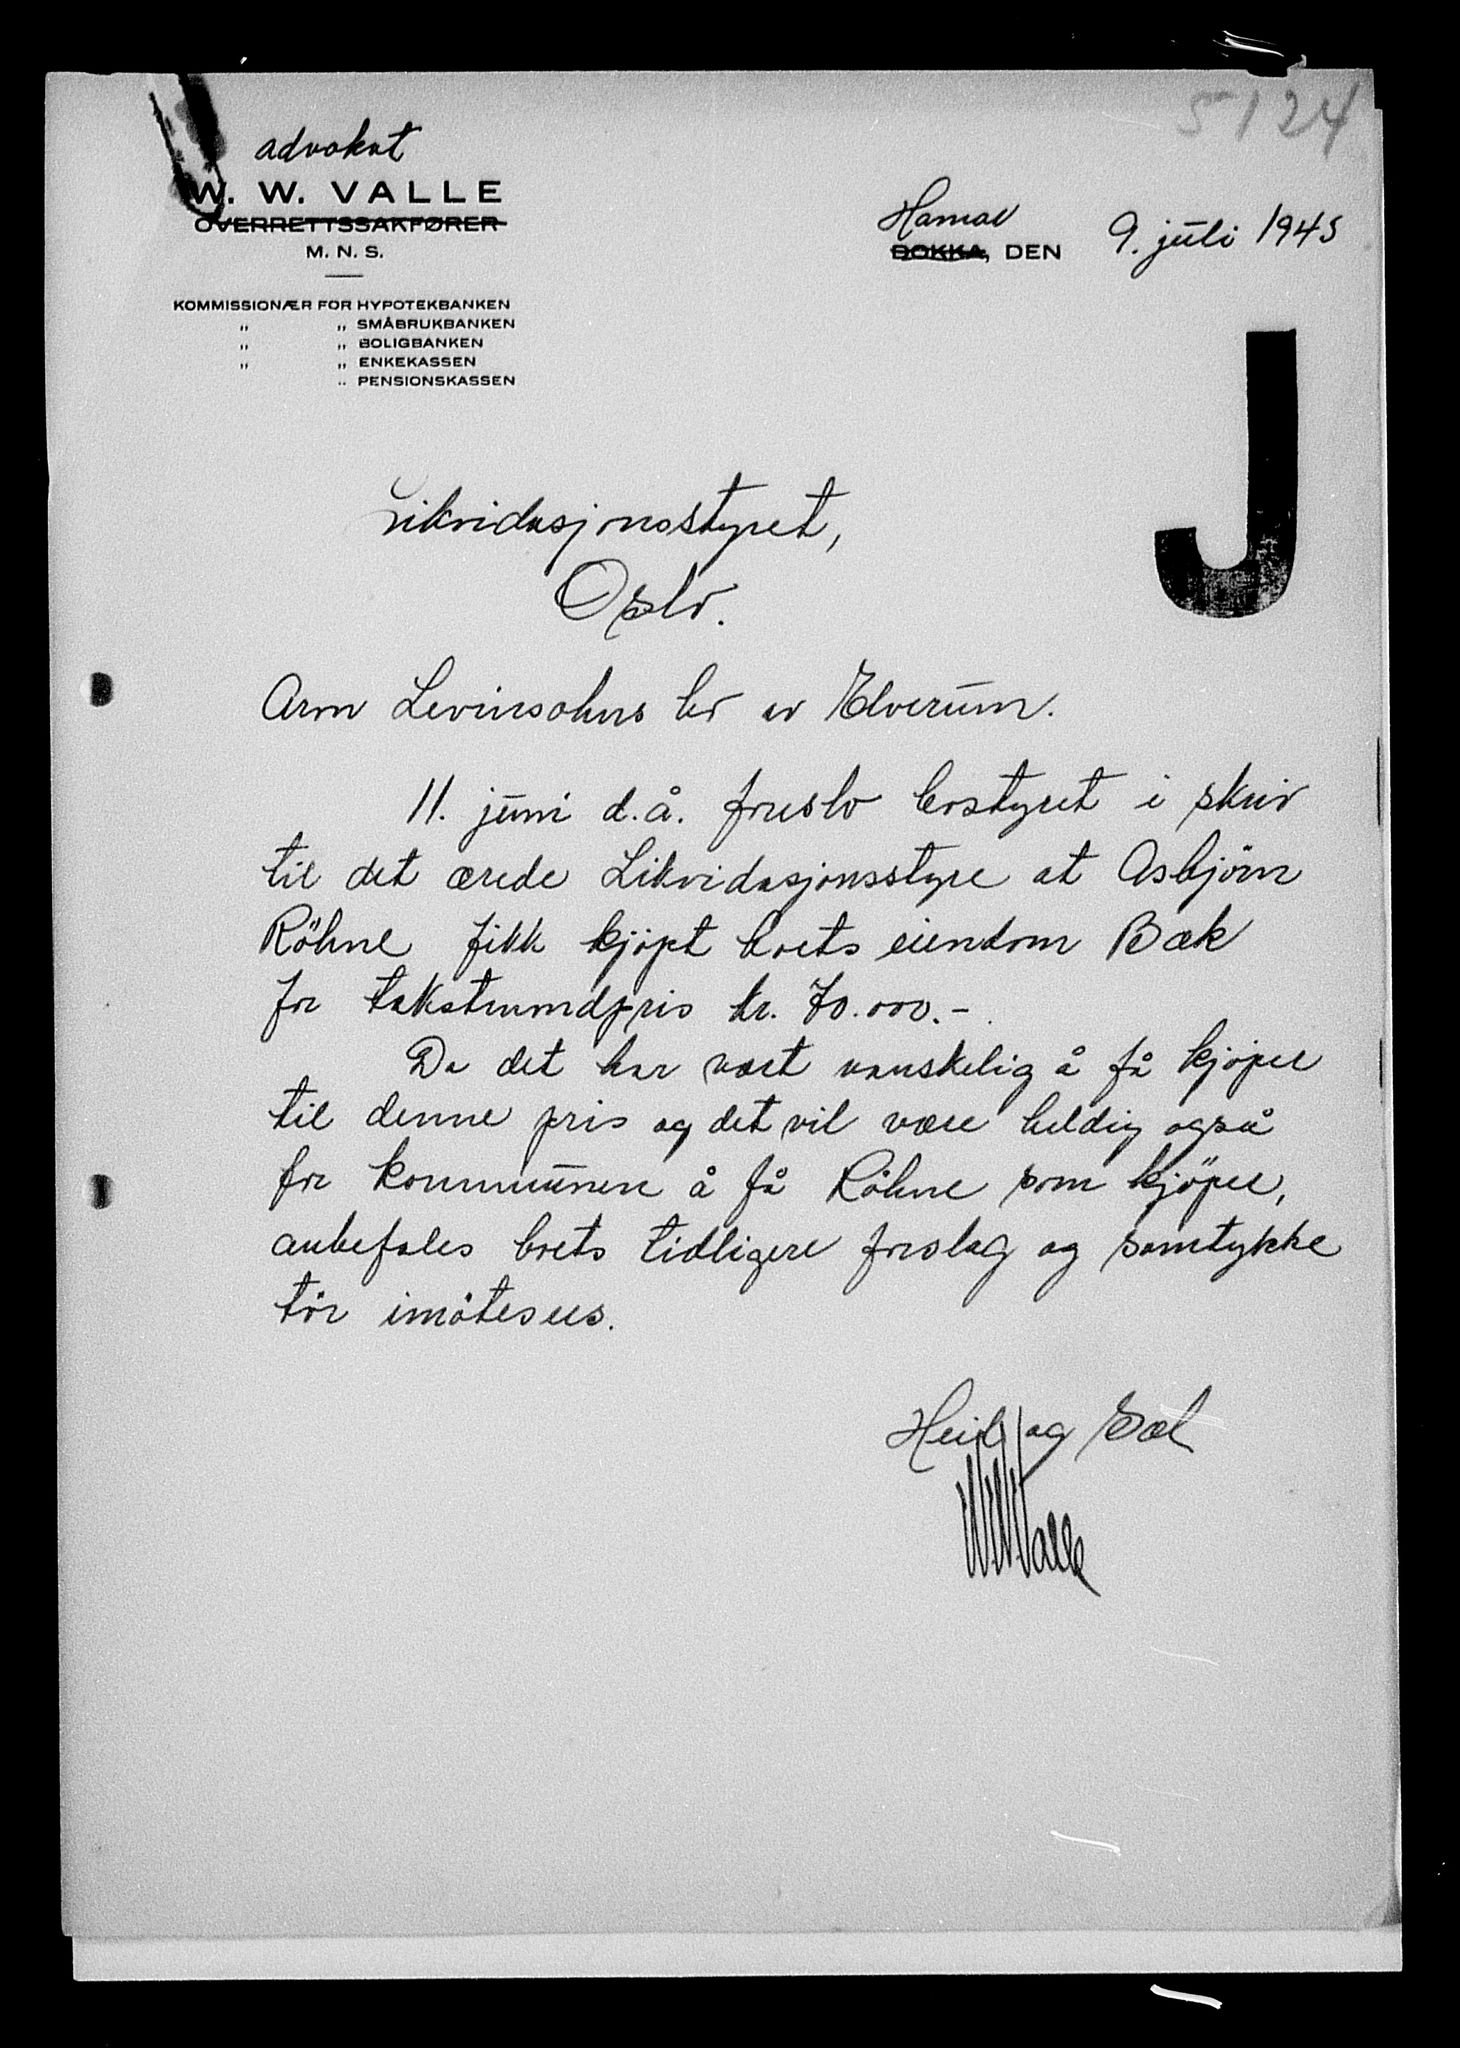 5124
advokat
W. W. VALLE
OVERRETTSSAKFØRER
M. N. S.
Hamar
DOKKA, DEN 9. juli 1943
KOMMISSIONÆR FOR HYPOTEKBANKEN
" " SMÅBRUKBANKEN
" " BOLIGBANKEN
" " ENKEKASSEN
" PENSIONSKASSEN
J
Likvidasjonsstyret,
Oslo.
Arm Levinsohns bo av Elverum.
11. juni d.å. foreslo bostyret i skriv
til det ærede Likvidasjonsstyre at Asbjörn
Röhne fikk kjöpt boets eiendom Bæk
for takstsumdpris kr. 70.000.-.
Da det har vært vanskelig å få kjöper
til denne pris og det vil være heldig også
for kommunen å få Röhne som kjöper,
anbefales boets tidligere forslag og samtykke
tör imötesees.
Heil og Sæl
WWValle